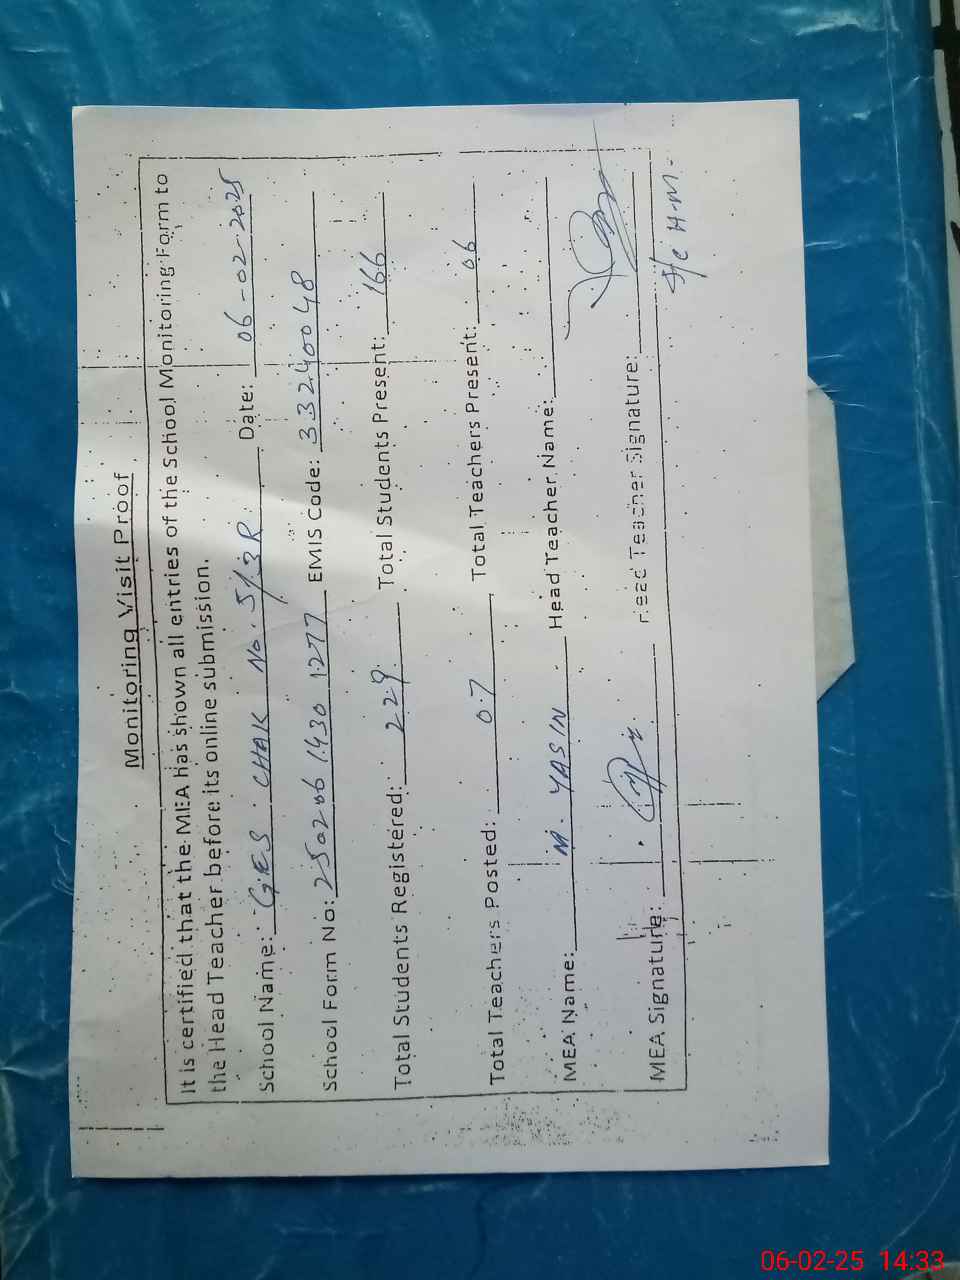 Monitoring Visit Proof
It is certified that the MEA has shown all entries of the School Monitoring Form to
the Head Teacher before its online submission.
School Name: GES CHAK No. 5/3R Date: 06-02-2025
School Form No: 250206 1430 1277 EMIS Code: 33240048
Total Students Registered: 229 Total Students Present: 166
Total Teachers Posted: 07 Total Teachers Present: 06
MEA Name: M. YASIN Head Teacher Name:
MEA Signature: Head Teacher Signature:
I/C H.M.
06-02-25 14:33